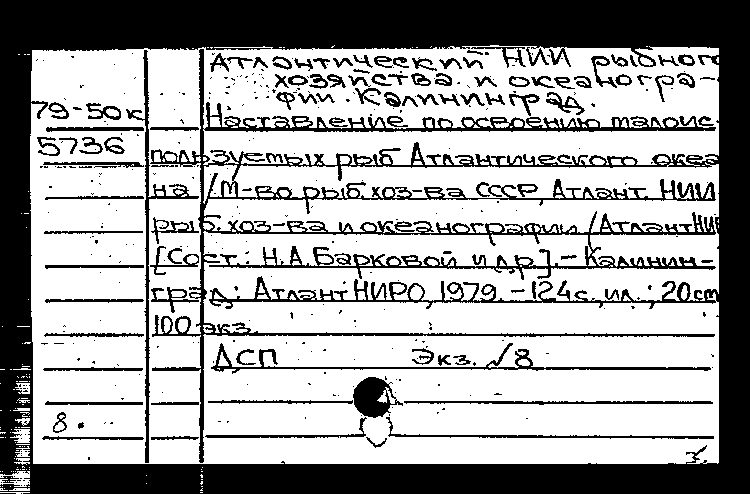 Атлантический НИИ рыбного
хозяйства и океаногра-
фии. Калининград.
79-50к Наставление по освоению малоис-
5736 пользуемых рыб Атлантического океа
на / М-во рыб. хоз-ва СССР, Атлант. НИИ
рыб. хоз-ва и океанографии (АтлантНИ
[Сост.: Н.А. Барковой и др.]. - Калинин-
град: АтлантНИРО, 1979. - 124с., ил.; 20см
100 экз.
ДСП Экз. √8
8.